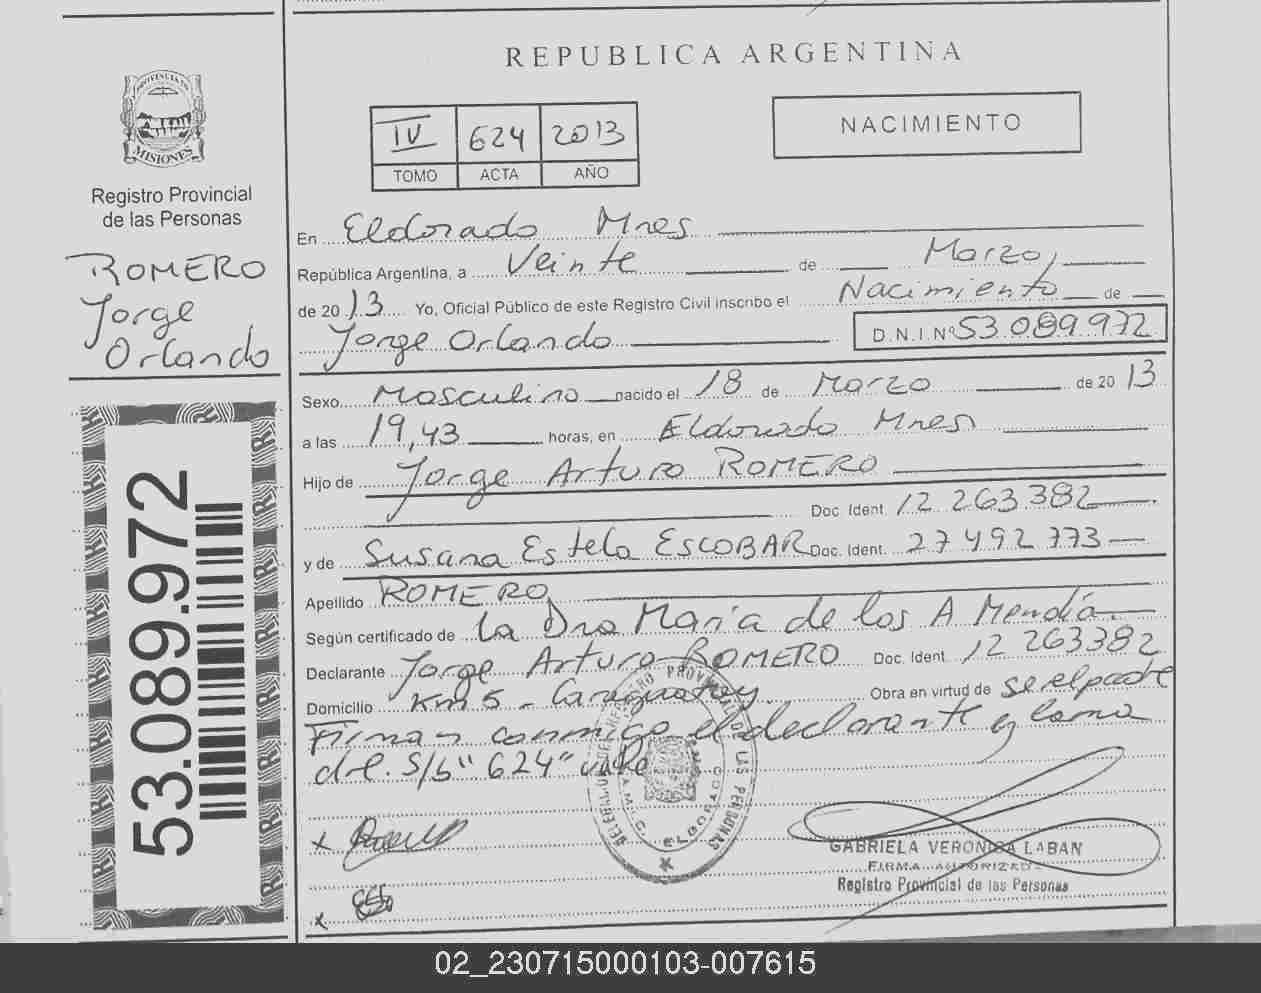 REPUBLICA ARGENTINA
PROVINCIA DE
MISIONES
Registro Provincial
de las Personas
ROMERO
Jorge
Orlando
53.089.972
IV 624 2013
TOMO ACTA AÑO
NACIMIENTO
En Eldorado Mnes
República Argentina, a Veinte de Marzo,
de 2013 Yo, Oficial Público de este Registro Civil inscribo el Nacimiento de
Jorge Orlando D.N.I.Nº 53.089.972
Sexo Masculino nacido el 18 de Marzo de 2013
a las 19,43 horas, en Eldorado Mnes
Hijo de Jorge Arturo ROMERO
Doc. Ident. 12 263.382
y de Susana Estela ESCOBAR Doc. Ident. 27 492 773
Apellido ROMERO
Según certificado de La Dra Maria de los A Mendía.
Declarante Jorge Arturo ROMERO Doc. Ident. 12 263382
Domicilio Km 5 - Caraguatay Obra en virtud de ser el padre
Firman conmigo el declarante y la ma
dre. S/b "624" vale
REGISTRO PROVINCIAL DE LAS PERSONAS
ELDORADO
GABRIELA VERONICA LABAN
FIRMA AUTORIZADA
Registro Provincial de las Personas
02_230715000103-007615